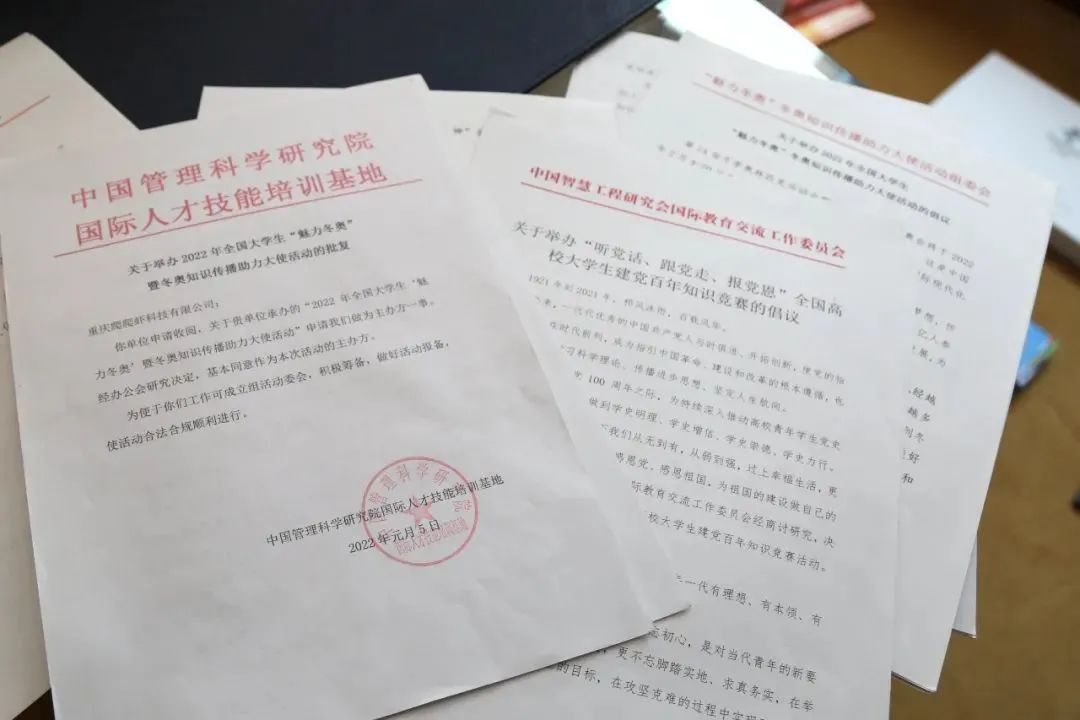 中国管理科学研究院
国际人才技能培训基地
关于举办 2022 年全国大学生“魅力冬奥”
暨冬奥知识传播助力大使活动的批复
重庆爬爬虾科技有限公司：
你单位申请收阅，关于贵单位承办的“2022 年全国大学生‘魅
力冬奥’暨冬奥知识传播助力大使活动”申请我们做为主办方一事。
经办公会研究决定，基本同意作为本次活动的主办方。
为便于你们工作可成立组活动委会，积极筹备，做好活动报备，
使活动合法合规顺利进行。
中国管理科学研究院国际人才技能培训基地
2022 年元月 5 日
中国智慧工程研究会国际教育交流工作委员会
关于举办“听党话、跟党走、报党恩”全国高
校大学生建党百年知识竞赛的倡议
1921 年到 2021 年，栉风沐雨，百载风华。
来，一代代优秀的中国共产党人与时俱进、开拓创新，使党的指
生时代前列，成为指引中国革命、建设和改革的根本遵循，也
习科学理论、传播进步思想、坚定人生航向。
党 100 周年之际，为持续深入推动高校青年学生党史
做到学史明理、学史增信、学史崇德、学史力行。
我们从无到有，从弱到强，过上幸福生活，更
感恩党、感恩祖国，为祖国的建设做自己的
际教育交流工作委员会经商讨研究，决
校大学生建党百年知识竞赛活动。
一代有理想、有本领、有
忘初心，是对当代青年的新要
，更不忘脚踏实地、求真务实，在举
的目标，在攻坚克难的过程中实现
“魅力冬奥”冬奥知识传播助力大使活动组委会
关于举办 2022 年全国大学生
“魅力冬奥”冬奥知识传播助力大使活动的倡议
第 24 届冬季奥林匹克运动会
年 2 月 4 日
会将于 2022
这是中国
际现代化
梦想，历
亿人参
展，为
经越
越多
到冬
更好
和